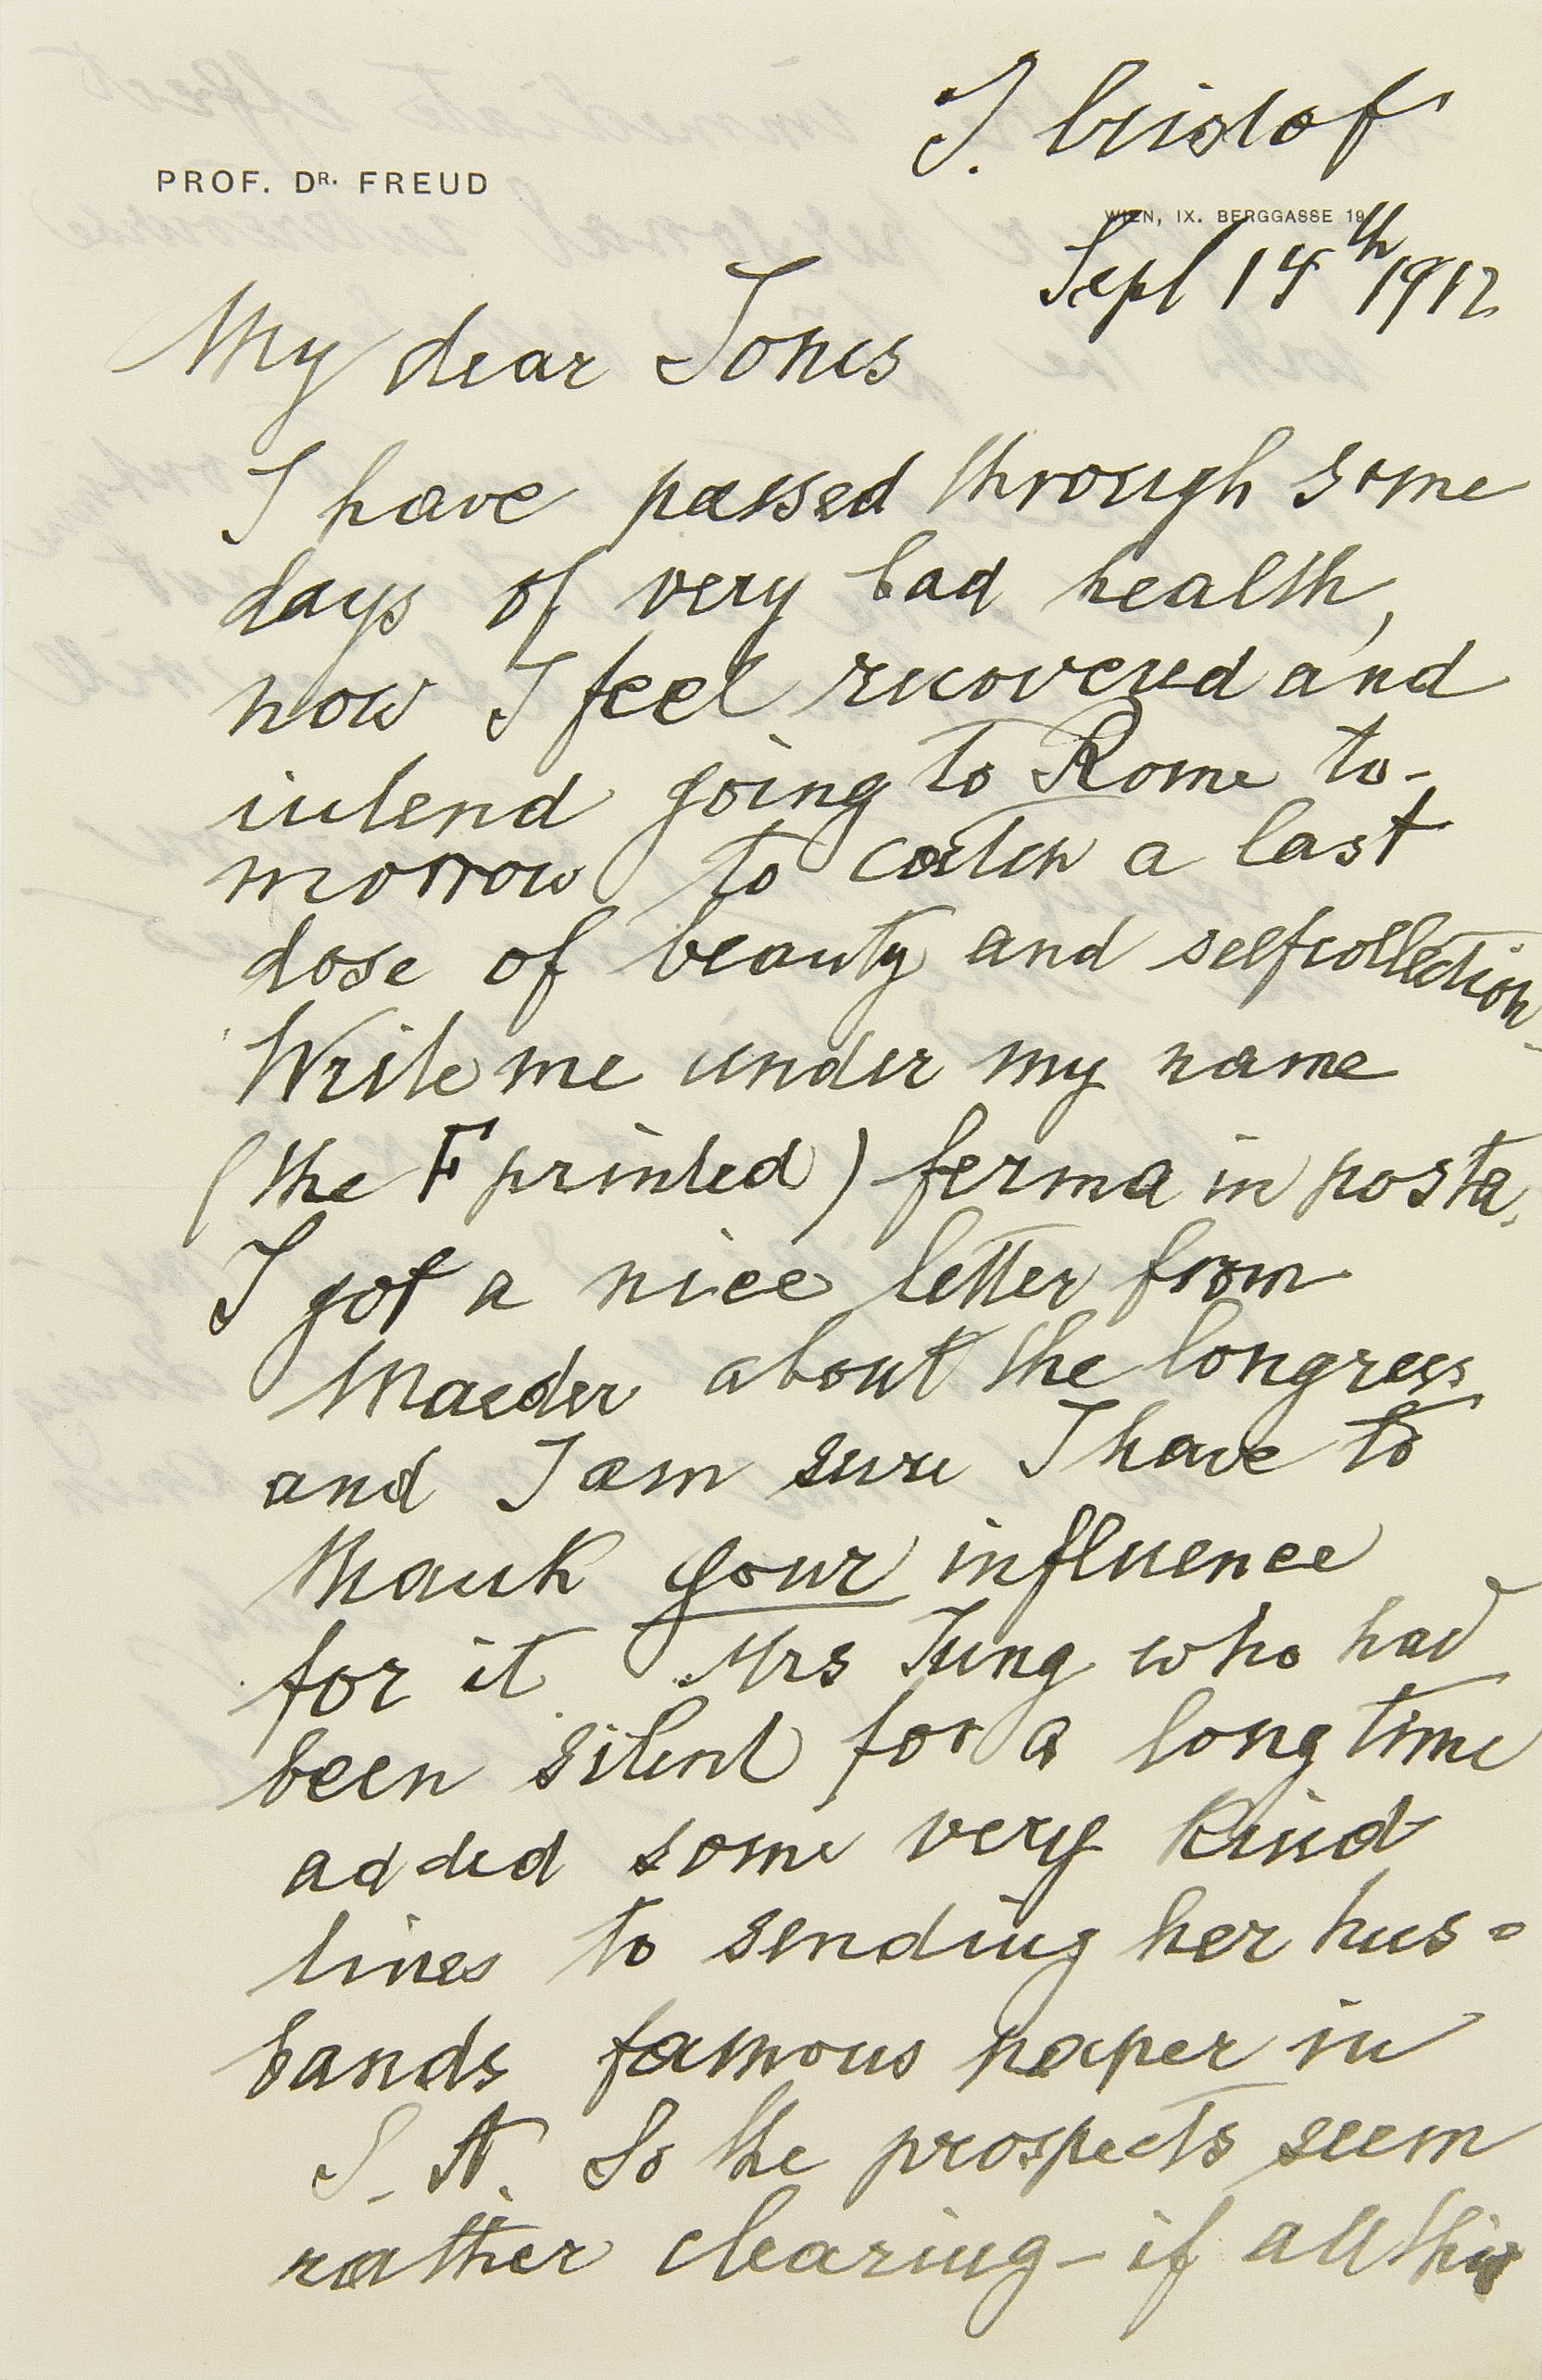 S. Cristof
PROF. DR. FREUD
WIEN, IX. BERGGASSE 19
Sept 14th 1912
My dear Jones
I have passed through some
days of very bad health,
now I feel recovered and
intend going to Rome to-
morrow to catch a last
dose of beauty and selfcollection.
Write me under my name
(the F printed) ferma in posta.
I got a nice letter from
Maeder about the Congress
and I am sure I have to
thank your influence
for it. Mrs Jung who had
been silent for a long time
added some very kind
lines to sending her hus=
bands famous paper in
S. A. So the prospects seem
rather clearing – if all this